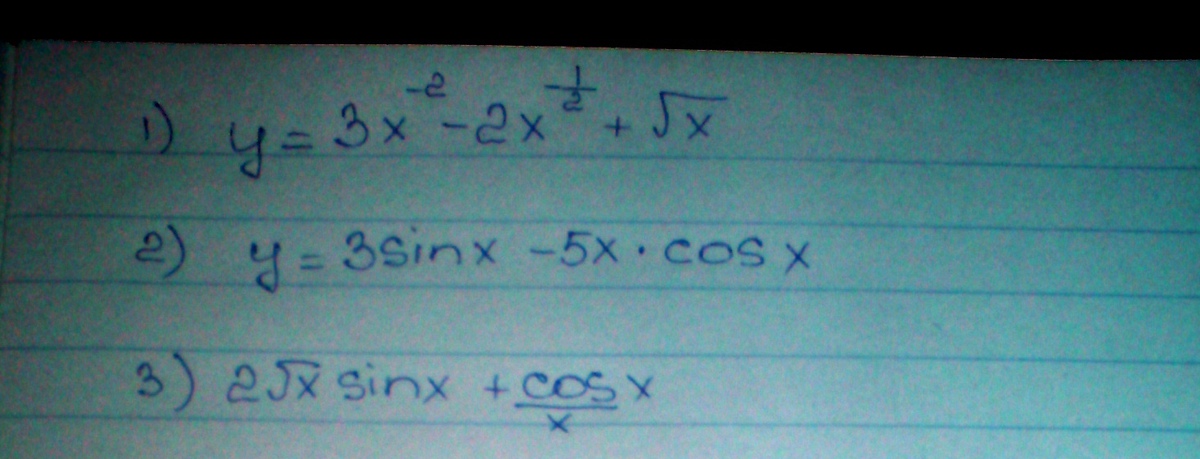 1) y = 3x⁻² - 2x^(1/2) + √x
2) y = 3sinx - 5x · cos x
3) 2√x sinx + cos/x x